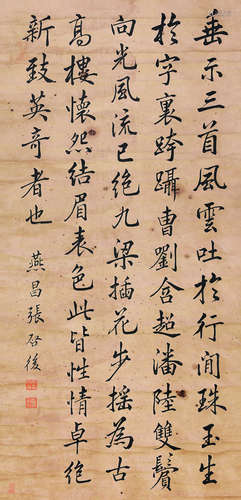 垂示三首風雲吐於行間珠玉生
於字裏跨躡曹劉含超潘陸雙鬢
向光風流已絕九梁插花步搖為古
高樓懷怨結眉表色此皆性情卓絕
新致英奇者也
燕昌張啓後